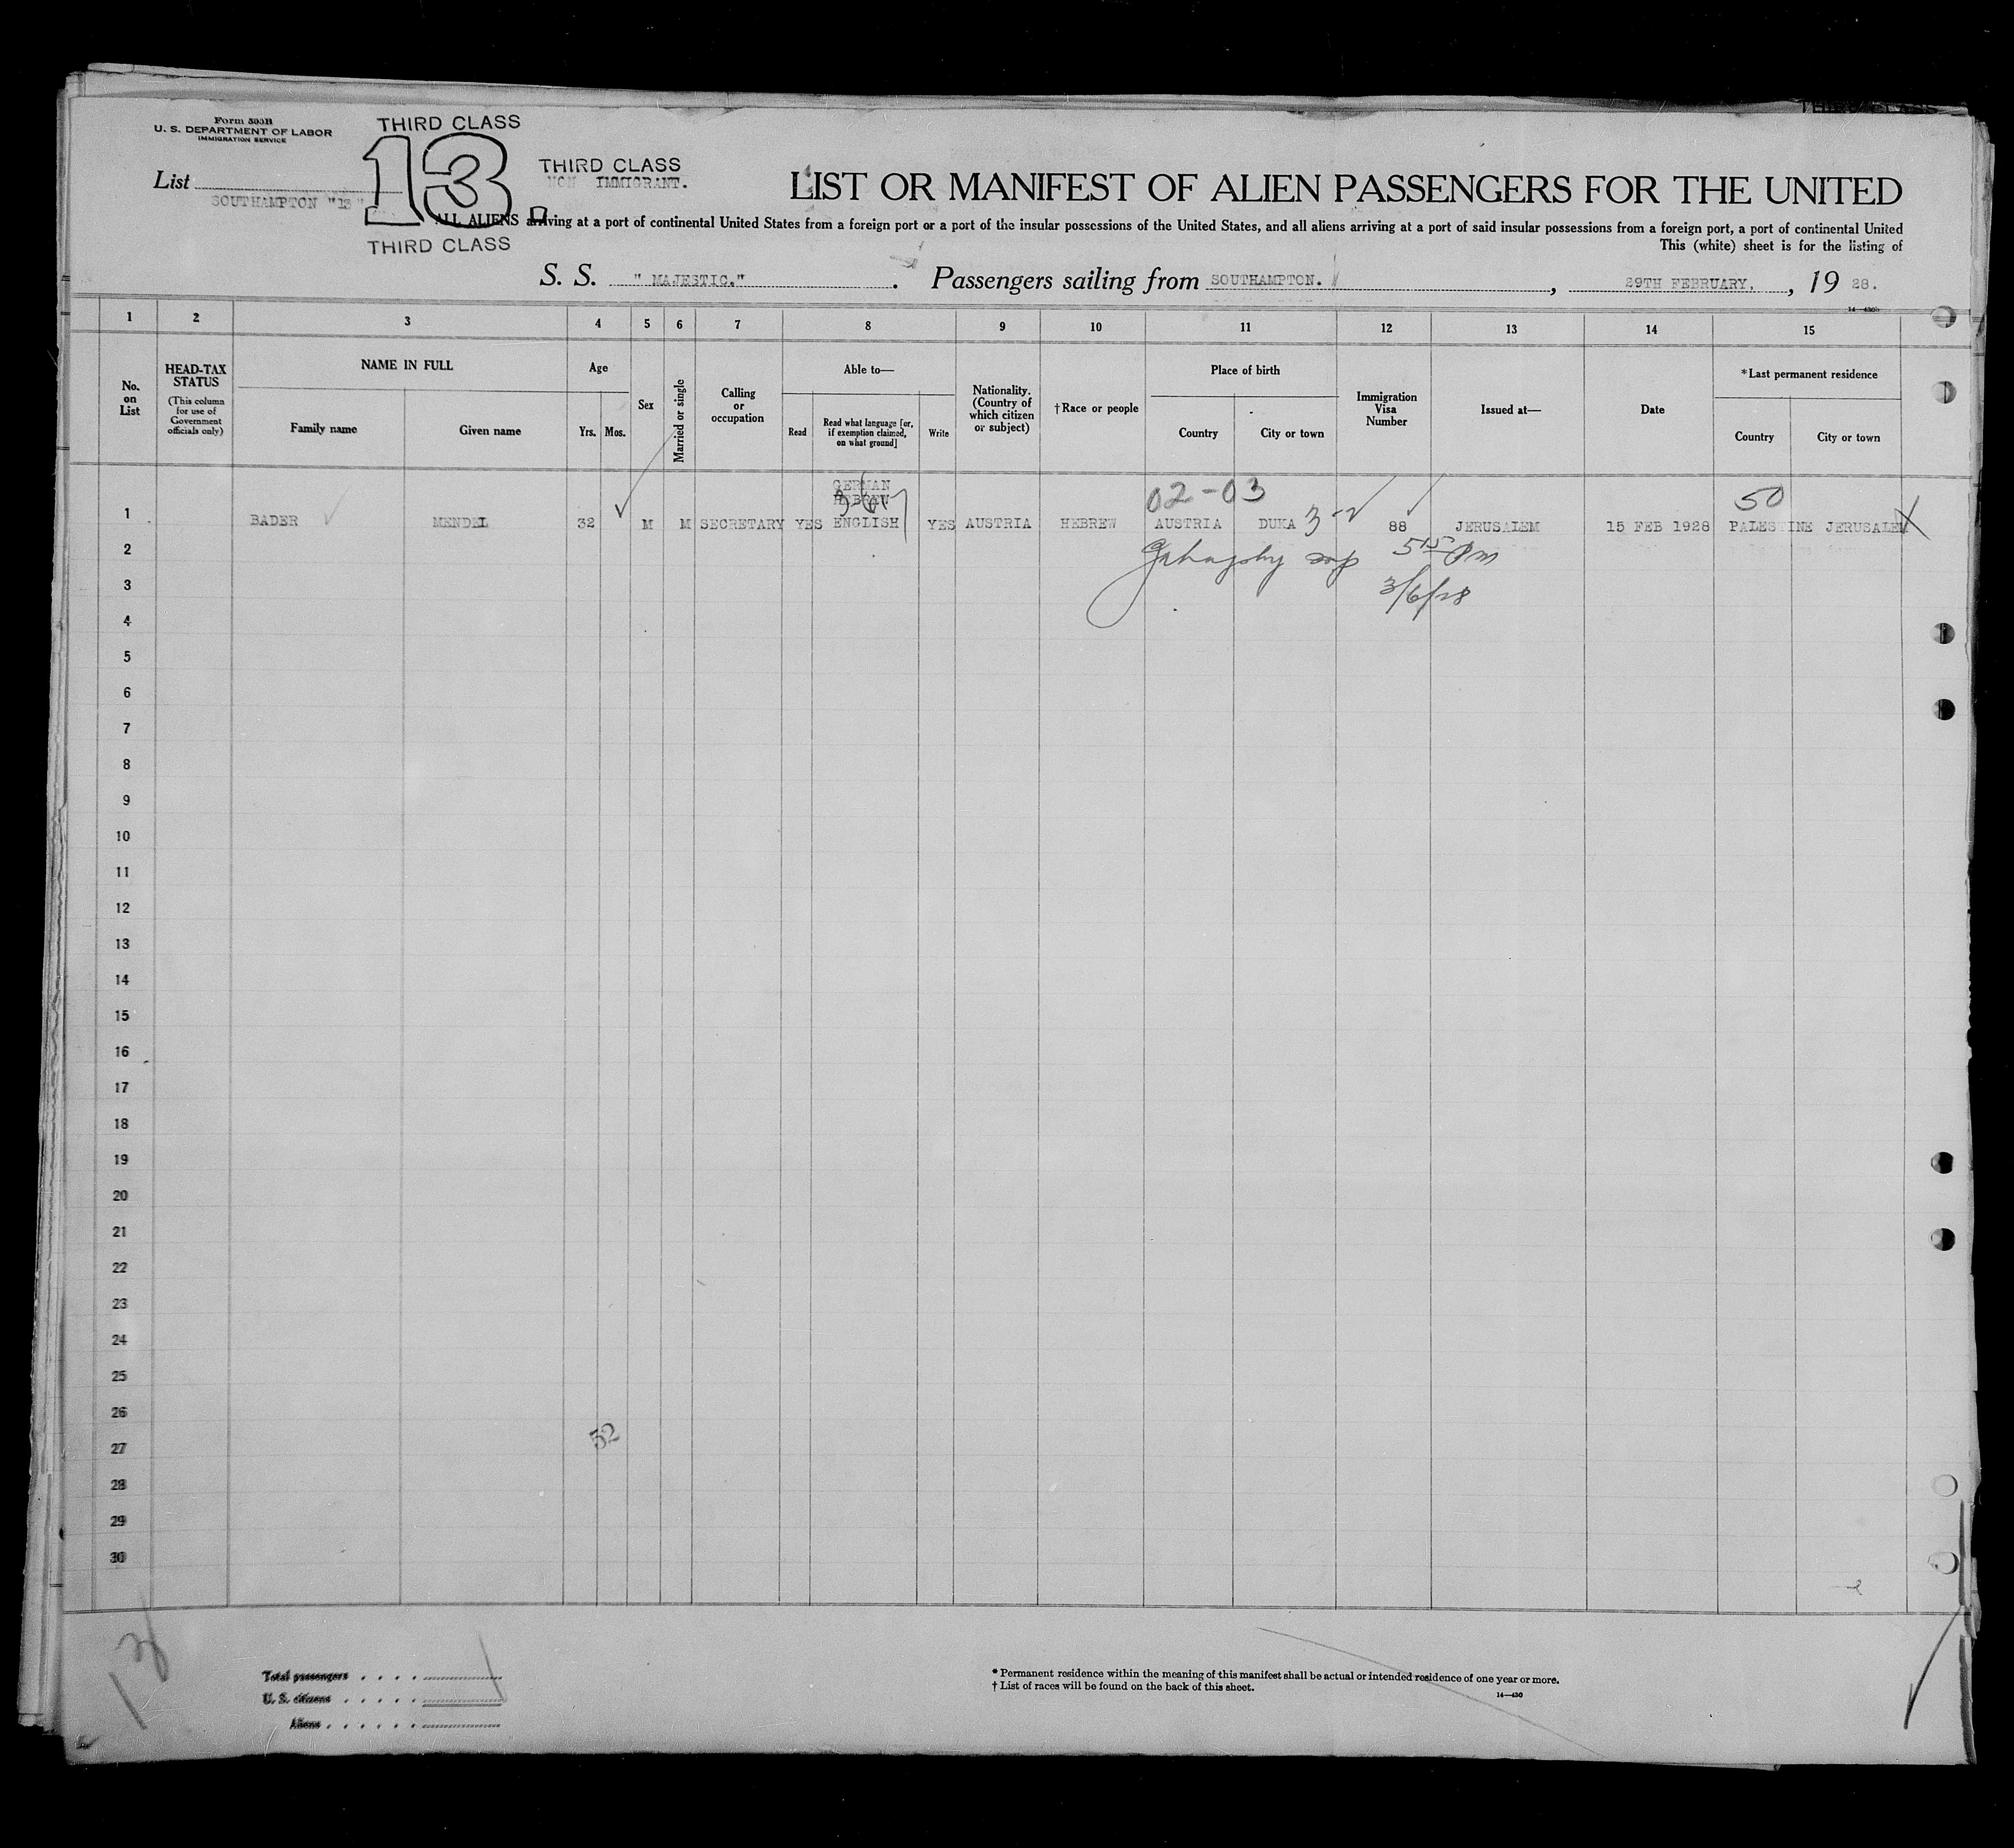 THIRD CLASS
Form 500B
U. S. DEPARTMENT OF LABOR
IMMIGRATION SERVICE
THIRD CLASS
13
THIRD CLASS
NON IMMIGRANT.
List
SOUTHAMPTON "13"
LIST OR MANIFEST OF ALIEN PASSENGERS FOR THE UNITED
ALL ALIENS arriving at a port of continental United States from a foreign port or a port of the insular possessions of the United States, and all aliens arriving at a port of said insular possessions from a foreign port, a port of continental United
THIRD CLASS
This (white) sheet is for the listing of
S. S. "MAJESTIC." . Passengers sailing from SOUTHAMPTON. , 29TH FEBRUARY, , 19 28.
14—430b
1 2 3 4 5 6 7 8 9 10 11 12 13 14 15
No. on List
HEAD-TAX STATUS (This column for use of Government officials only)
NAME IN FULL
Family name Given name
Age
Yrs. Mos.
Sex
Married or single
Calling or occupation
Able to—
Read Read what language [or, if exemption claimed, on what ground] Write
Nationality. (Country of which citizen or subject)
†Race or people
Place of birth
Country City or town
Immigration Visa Number
Issued at—
Date
*Last permanent residence
Country City or town
GERMAN
HEBREW
02-03 50
1 BADER MENDEL 32 M M SECRETARY YES ENGLISH YES AUSTRIA HEBREW AUSTRIA DUKA 88 JERUSALEM 15 FEB 1928 PALESTINE JERUSALEM
2 5 15 Pm
3 3/6/28
4
5
6
7
8
9
10
11
12
13
14
15
16
17
18
19
20
21
22
23
24
25
26
32
27
28
29
30
13
Total passengers
U. S. citizens
Aliens
* Permanent residence within the meaning of this manifest shall be actual or intended residence of one year or more.
† List of races will be found on the back of this sheet.
14—430